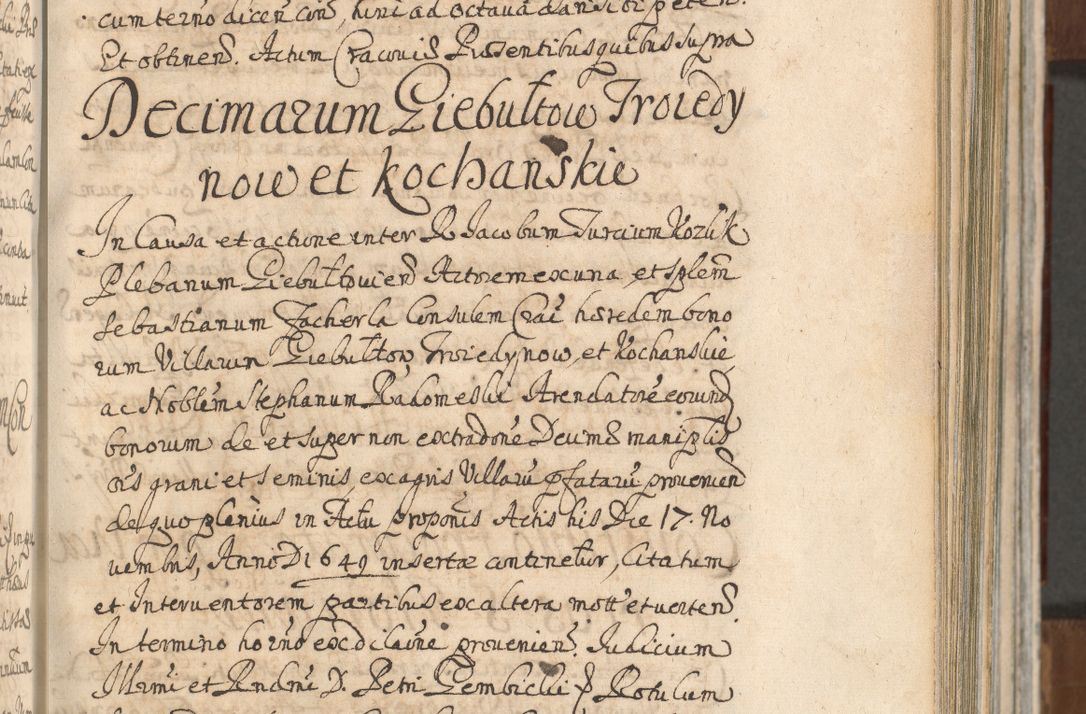 cum terno dicen con, huic ad octavā
Et obtinen̄. Actum Cracoviæ Præsentibus quibus supra
Decimarum Giebułtow Troiedy
now et Kochanskie
In Causa et actione inter R. Jacobum Turcium Kozlik
Plebanum Giebułtovien̄ Actorem ex una, et Splem̄
Sebastianum Zacherla Consulem Crac̄ hæredem bono
rum Villarum Giebułtow, Troiedynow, et Kochanskie
ac Noblem̄ Stephanum Radomeski Arendatorē eorund̄
bonorum de et super non extradone Decimæ maniplis
oīs grani et seminis, ex agris Villarū pfatarū provenien̄
de quo plenius in Actu proponīs Actis his Die 17. No
vembris, Anno D 1649 insertæ continetur, Citatum
et Interventorem partibus ex altera mott̄ et verten̄
In termino horn̄o ex dilaōne provenien̄. Judicium
Illrmi et Rndmi D. Petri Gembicki p Rotulum